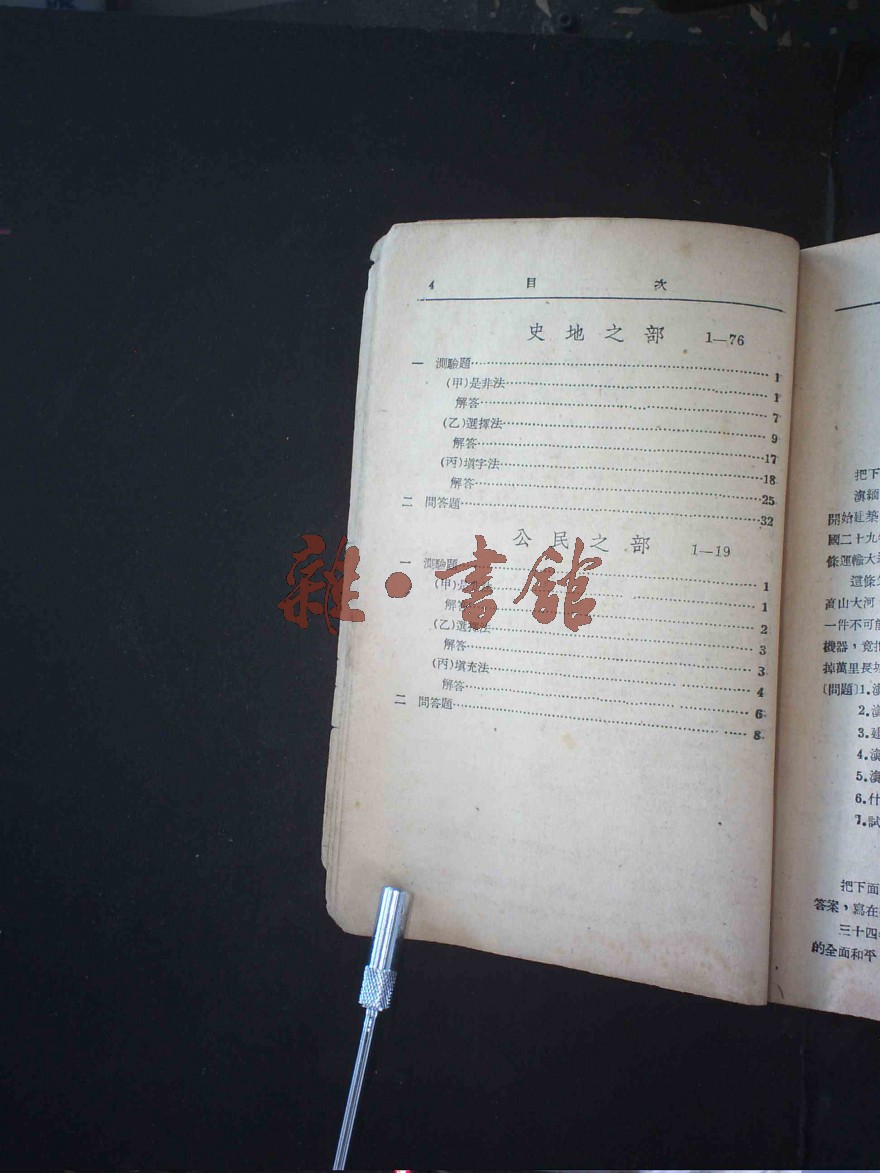 4 目次
史地之部 1—76
一 測驗題 1
(甲)是非法 1
解答 7
(乙)選擇法 9
解答 17
(丙)填字法 18
解答 25
二 問答題 32
公民之部 1—19
一 測驗題 1
(甲)是非法 1
解答 2
(乙)選擇法 3
解答 3
(丙)填充法 4
解答 6
二 問答題 8
雜·書館
把下
滇緬
開始建築
國二十九年
條運輸大
這條
高山大河，
一件不可能
機器，竟
掉萬里長城
〔問題〕1.滇
2.滇
3.建
4.滇
5.滇
6.什
7.試
把下面
答案，寫在
三十四
的全面和平